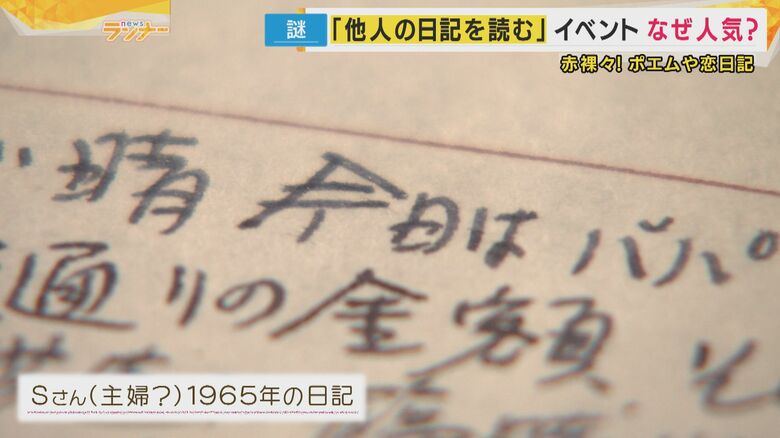 news
ランナー
謎 「他人の日記を読む」イベント なぜ人気?
赤裸々! ポエムや恋日記
晴 今日は パパ
通りの金額 そ
Sさん(主婦?)1965年の日記